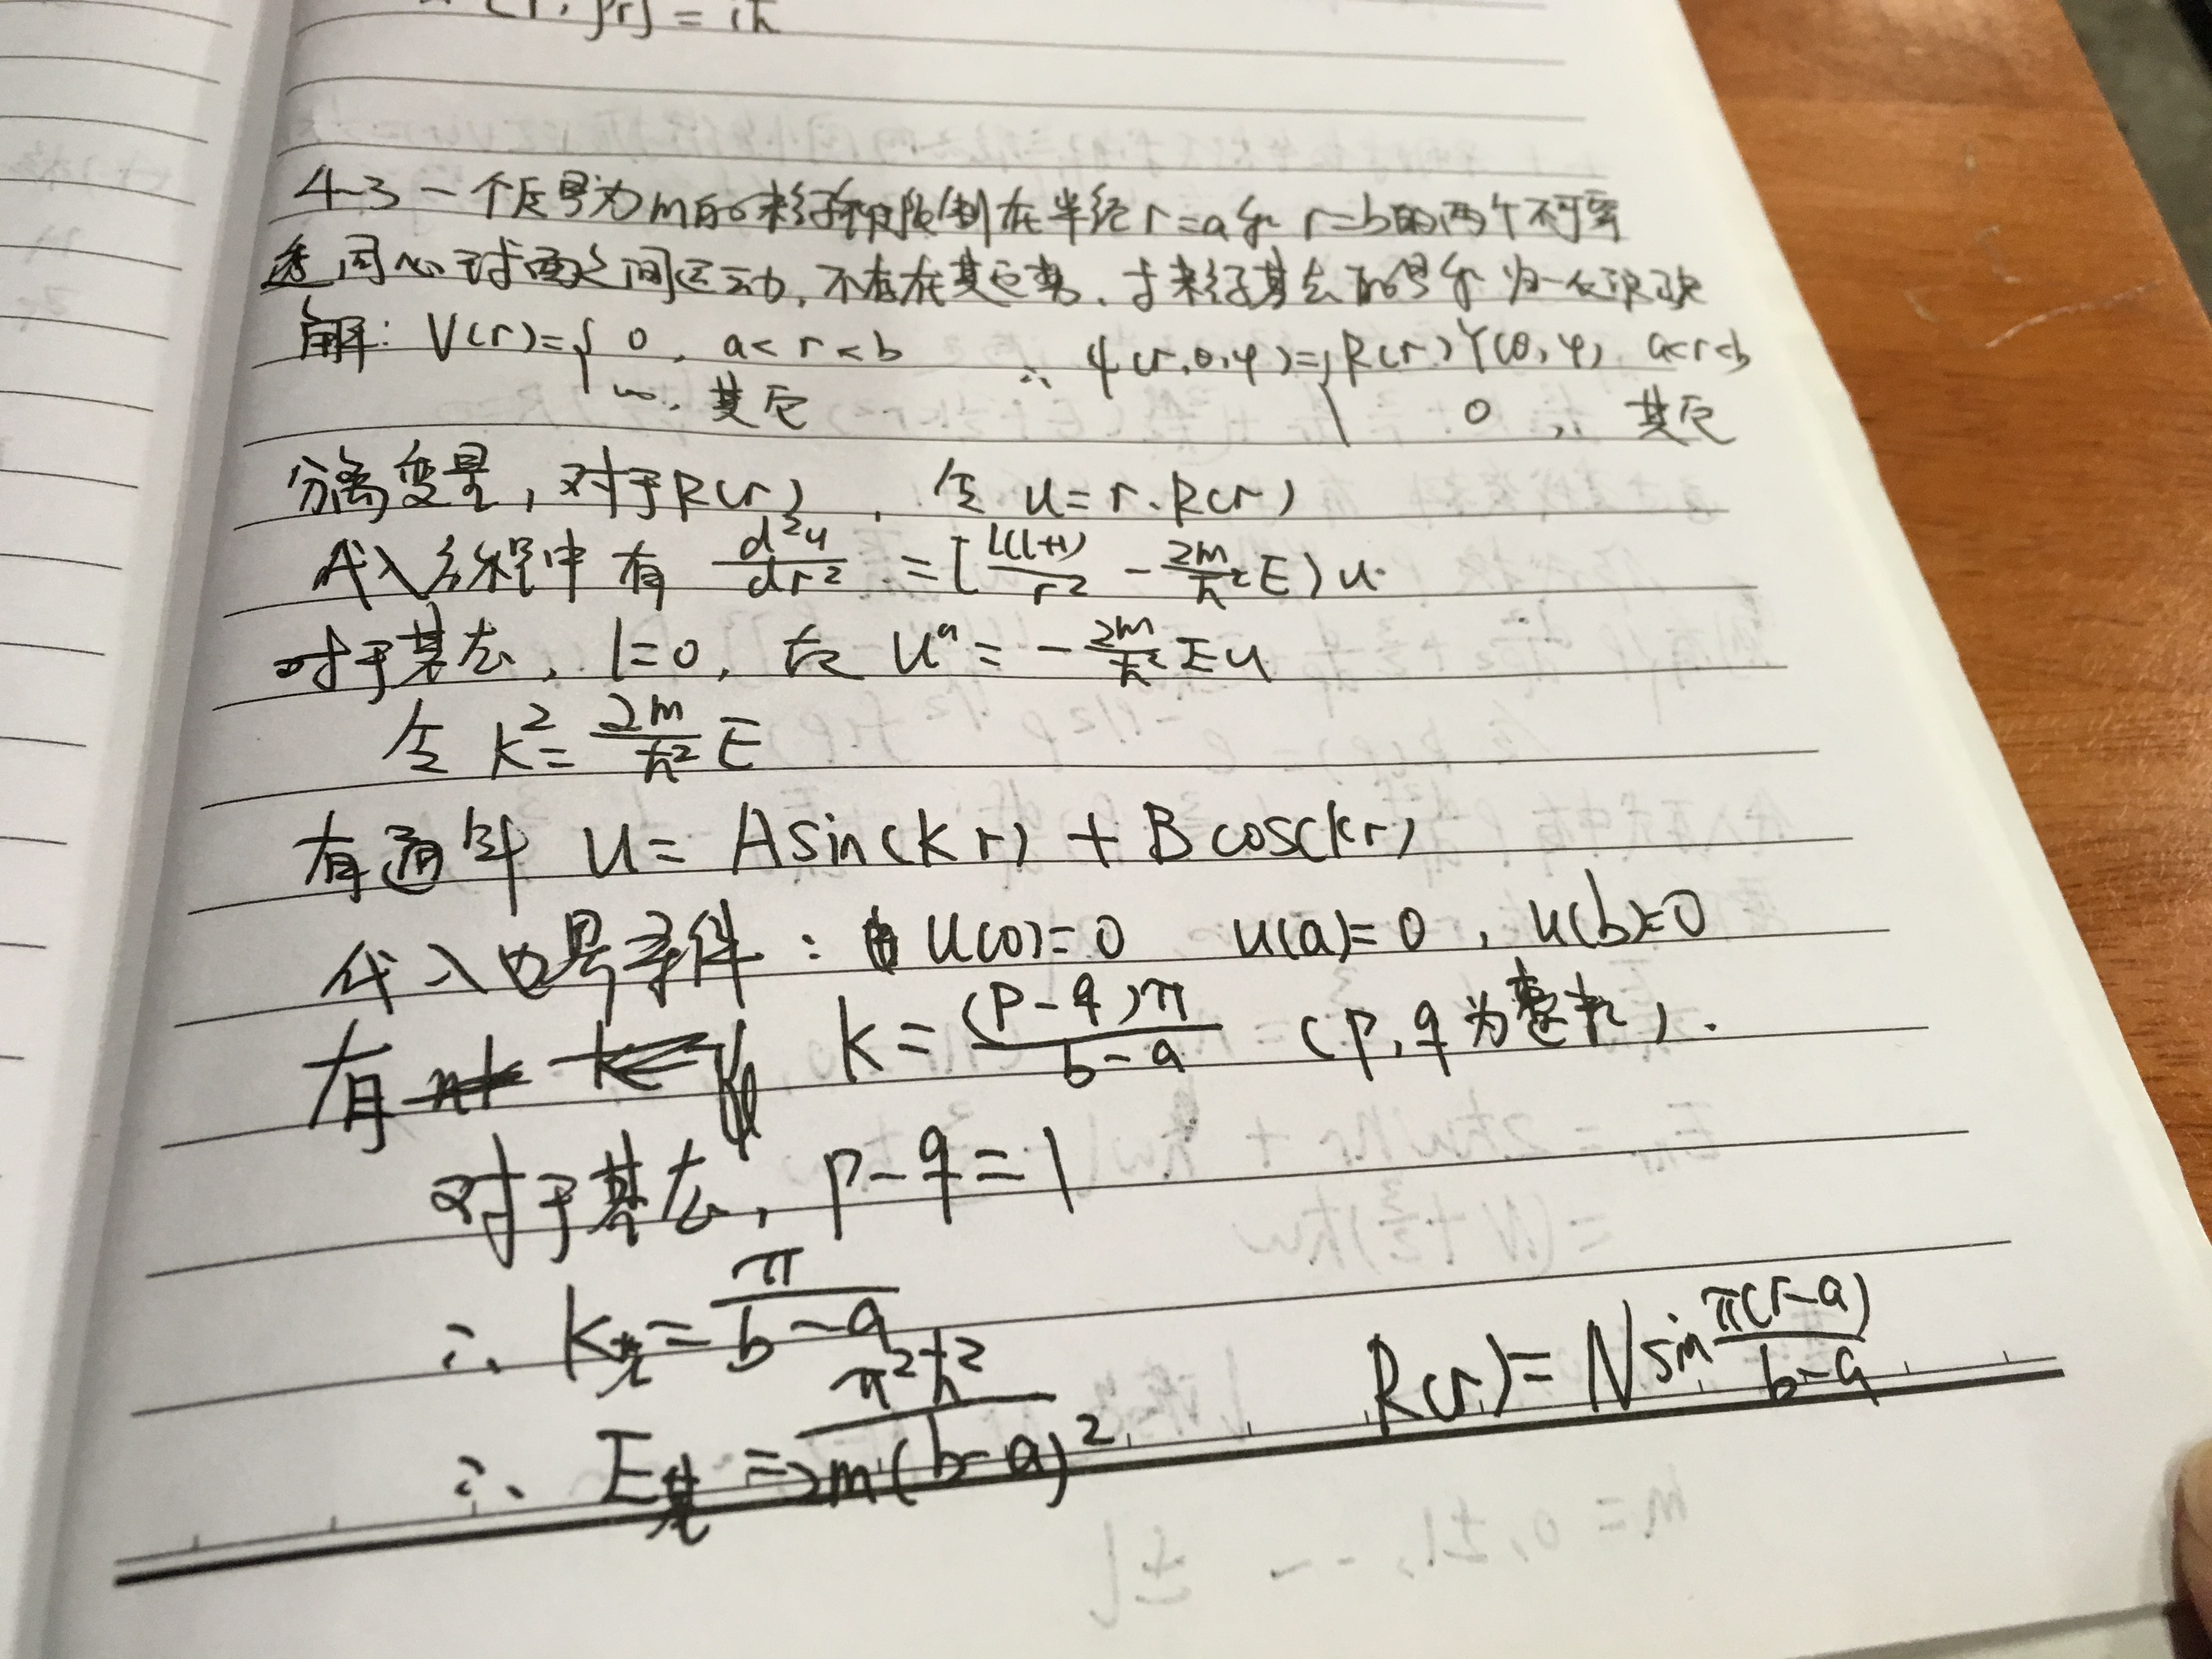 = iħ
4-3 一个质量为m的粒子被限制在半径r=a和r=b的两个不可穿
透同心球面之间运动，不存在其它势，求粒子基态能量和归一化波函数
解：V(r)={0, a<r<b ∴ ψ(r,θ,φ)={R(r)Y(θ,φ) a<r<b
∞, 其它 0, 其它
分离变量，对于R(r)，令 u=r·R(r)
代入方程中有 d²u/dr² = [l(l+1)/r² - 2m/ħ² E)u.
对于基态，l=0，有 u" = -2m/ħ² Eu
令 k²= 2m/ħ² E
有通解 u= Asin(kr) + Bcos(kr)
代入边界条件： u(0)=0 u(a)=0, u(b)=0
有 k= (p-q)π/b-a (p,q为整数).
对于基态，p-q=1
∴ k基= π/b-a
∴ E基 = π²ħ²/2m(b-a)² R(r)= Nsin π(r-a)/b-a